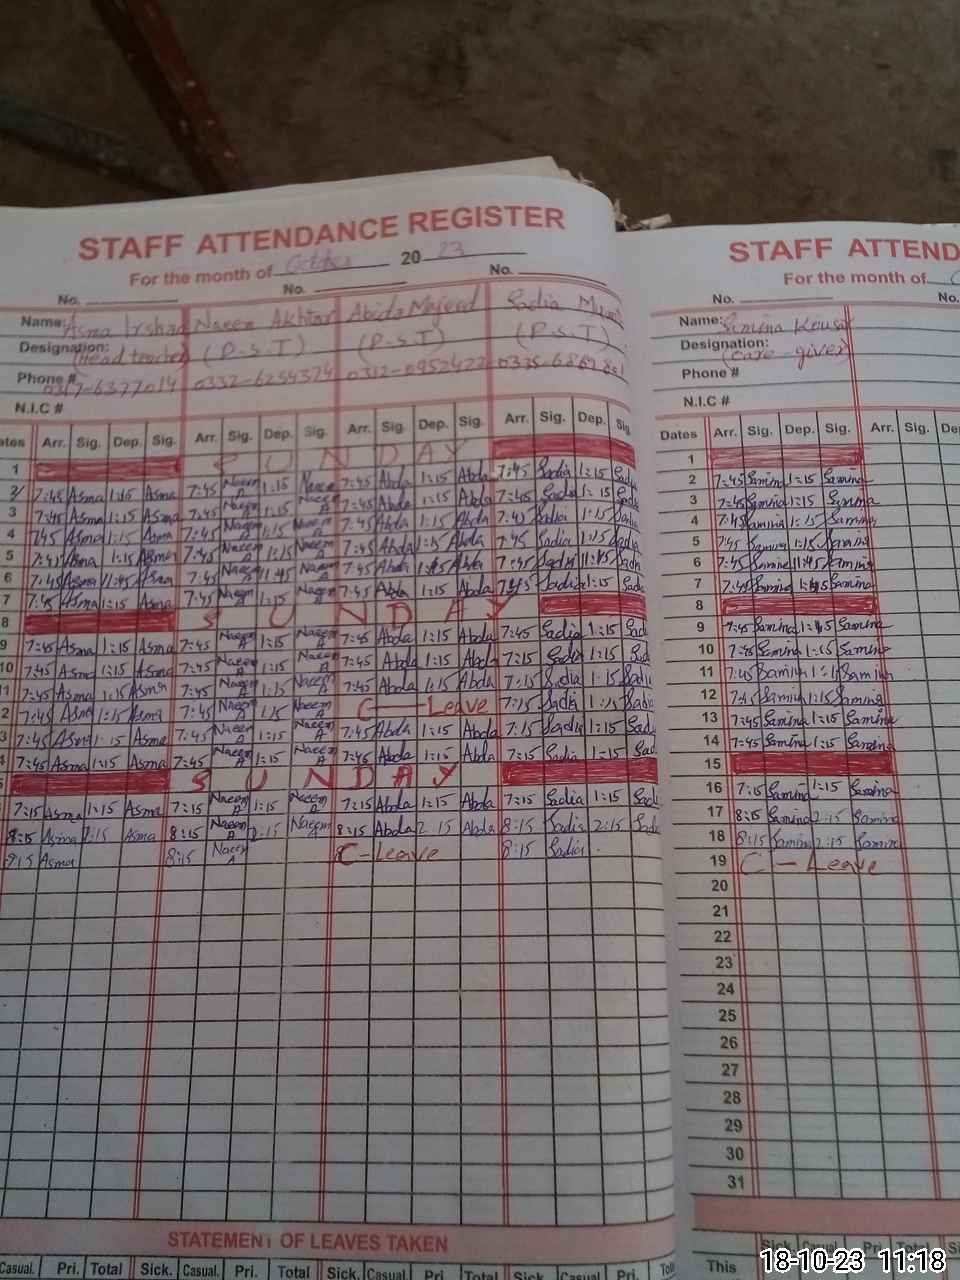 STAFF ATTENDANCE REGISTER
For the month of October 2023
No. No. No.
Name: Asma Irshad Naeem Akhtar Abida Majeed Sadia
Designation: (Head teacher) (P.S.T) (P.S.T) (P.S.T)
Phone # 0317-6377014 0332-6254374 0312-0952422
N.I.C #
Arr. Sig. Dep. Sig. Arr. Sig. Dep. Sig. Arr. Sig. Dep. Sig. Arr. Sig. Dep. Sig.
1 SUNDAY
2 7:45 Asma 1:15 Asma 7:45 Naeem 1:15 Naeem 7:45 Abda 1:15 Abda 7:45 Sadia 1:15
3 7:45 Asma 1:15 Asma 7:45 Naeem 1:15 Naeem 7:45 Abda 1:15 Abda 7:45 Sadia 1:15
4 7:45 Asma 1:15 Asma 7:45 Naeem 1:15 Naeem 7:45 Abda 1:15 Abda 7:45 Sadia 1:15
5 7:45 Asma 1:15 Asma 7:45 Naeem 1:15 Naeem 7:45 Abda 1:15 Abda 7:45 Sadia 1:15
6 7:45 Asma 11:45 Asma 7:45 Naeem 11:45 Naeem 7:45 Abda 11:45 Abda 7:45 Sadia 11:45
7 7:45 Asma 1:15 Asma 7:45 Naeem 1:15 Naeem 7:45 Abda 1:15 Abda 7:45 Sadia 1:15
8 SUNDAY
9 7:45 Asma 1:15 Asma 7:45 Naeem A 1:15 Naeem A 7:45 Abda 1:15 Abda 7:45 Sadia 1:15
10 7:45 Asma 1:15 Asma 7:45 Naeem A 1:15 Naeem A 7:45 Abda 1:15 Abda 7:15 Sadia 1:15
7:45 Asma 1:15 Asma 7:45 Naeem A 1:15 Naeem A 7:45 Abda 1:15 Abda 7:15 Sadia 1:15
7:45 Asma 1:15 Asma 7:45 Naeem A 1:15 Naeem A C-Leave 7:15 Sadia 1:15
7:45 Asma 1:15 Asma 7:45 Naeem A 1:15 Naeem A 7:45 Abda 1:15 Abda 7:15 Sadia 1:15
7:45 Asma 1:15 Asma 7:45 Naeem A 1:15 Naeem A 7:45 Abda 1:15 Abda 7:15 Sadia 1:15
SUNDAY
7:15 Asma 1:15 Asma 7:15 Naeem A 1:15 Naeem A 7:15 Abda 1:15 Abda 7:15 Sadia 1:15
8:15 Asma 2:15 Asma 8:15 Naeem A 2:15 Naeem 8:15 Abda 2:15 Abda 8:15 Sadia 2:15
8:15 Asma 8:15 Naeem A C-Leave 8:15 Sadia
STATEMENT OF LEAVES TAKEN
Casual. Pri. Total Sick. Casual. Pri. Total Sick. Casual. Pri. Total Sick. Casual. Pri.
STAFF ATTEND
For the month of
No. No.
Name: Samina Kousar
Designation: (care-giver)
Phone #
N.I.C #
Dates Arr. Sig. Dep. Sig. Arr. Sig.
1
2 7:45 Samina 1:15 Samina
3 7:45 Samina 1:15 Samina
4 7:45 Samina 1:15 Samina
5 7:45 Samina 1:15 Samina
6 7:45 Samina 11:45 Samina
7 7:45 Samina 1:15 Samina
8
9 7:45 Samina 1:15 Samina
10 7:45 Samina 1:15 Samina
11 7:45 Samina 1:15 Samina
12 7:45 Samina 1:15 Samina
13 7:45 Samina 1:15 Samina
14 7:45 Samina 1:15 Samina
15
16 7:15 Samina 1:15 Samina
17 8:15 Samina 2:15 Samina
18 8:15 Samina 2:15 Samina
19 C - Leave
20
21
22
23
24
25
26
27
28
29
30
31
Sick. Casual. Pri. Total
This
18-10-23 11:18